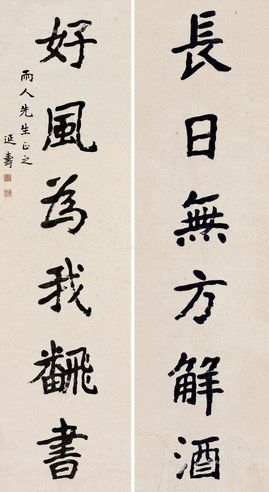 長日無方解酒
好風為我翻書
雨人先生正之
延壽